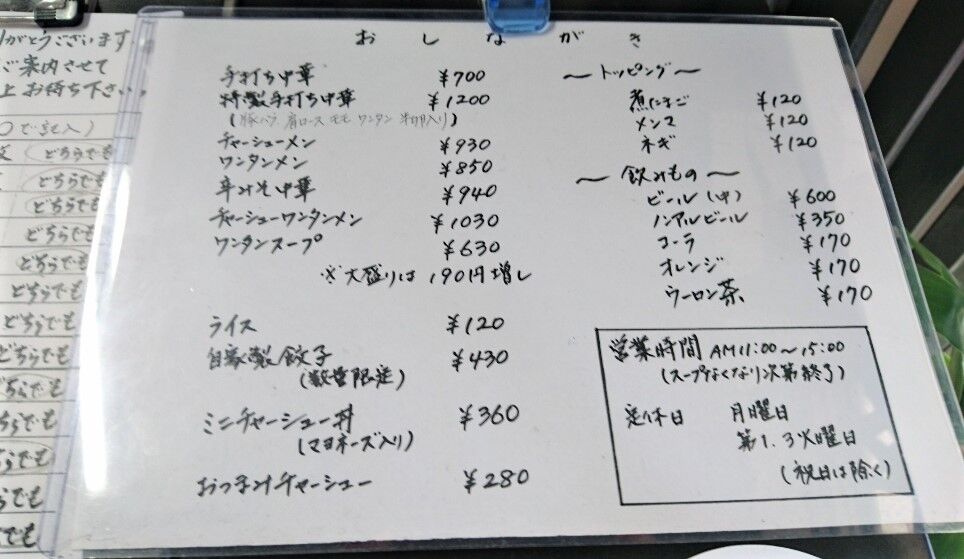 りがとうございます。
ご案内させて
上お待ち下さい。
○で記入)
どちらでも
どちらでも
どちらでも
どちらでも
どちらでも
どちらでも
どちらでも
どちらでも
どちらでも
ちらでも
ちらでも
らでも
らでも
でも
おしながき
手打ち中華 ¥700
特製手打ち中華 ¥1200
(豚バラ 肩ロース モモ ワンタン 半卵入り)
チャーシューメン ¥930
ワンタンメン ¥850
辛みそ中華 ¥940
チャーシューワンタンメン ¥1030
ワンタンスープ ¥630
※大盛りは190円増し
ライス ¥120
自家製餃子 ¥430
(数量限定)
ミニチャーシュー丼 ¥360
(マヨネーズ入り)
おつまみチャーシュー ¥280
〜トッピング〜
煮たまご ¥120
メンマ ¥120
ネギ ¥120
〜飲みもの〜
ビール(中) ¥600
ノンアルビール ¥350
コーラ ¥170
オレンジ ¥170
ウーロン茶 ¥170
営業時間 AM11:00〜15:00
(スープなくなり次第終了)
定休日 月曜日
第1.3火曜日
(祝日は除く)